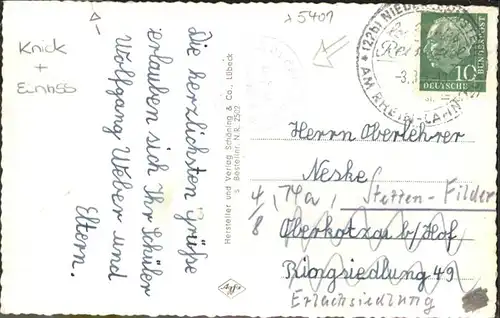 λ 5401
Knick
+
Einriss
Die herzlichsten Grüße
erlauben sich Ihr Schüler
Wolfgang Weber und
Eltern.
Hersteller und Verlag Schöning & Co., Lübeck
Bestellnr. N.R. 2502
(22b) NIEDER
AM RHEIN-LAHN
-3.
10
DEUTSCHE
Herrn Oberlehrer
Neske
4/8 74a, Stetten-Filder
Oberkotzau b/Hof
Ringsiedlung 49
Erlachsiedlung